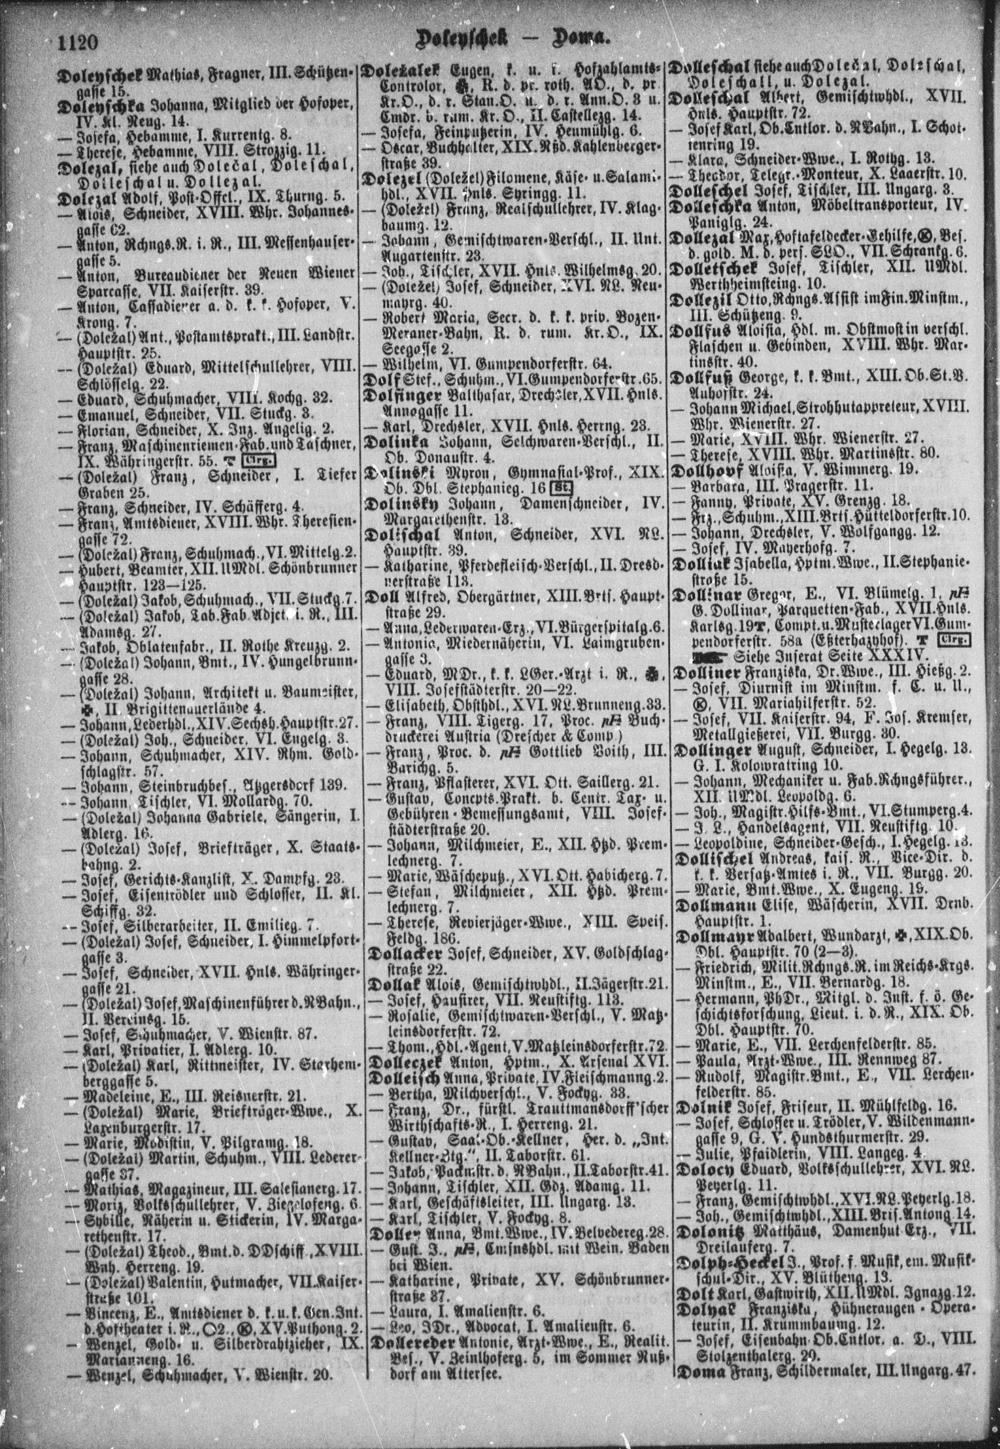 1120
Doleyschek — Doma.
Doleyschek Mathias, Fragner, III. Schützen-
gasse 15.
Doleyschka Johanna, Mitglied der Hofoper,
IV. Kl. Neug. 14.
— Josefa, Hebamme, I. Kurrentg. 8.
— Therese, Hebamme, VIII. Strozzig. 11.
Dolezal, siehe auch Dolečal, Doleschal,
Dolleschal u. Dollezal.
Dolezal Adolf, Post-Offcl., IX. Thurng. 5.
— Alois, Schneider, XVIII. Whr. Johannes-
gasse 62.
— Anton, Rchngs.R. i. R., III. Messenhauser-
gasse 5.
— Anton, Bureaudiener der Neuen Wiener
Sparcasse, VII. Kaiserstr. 39.
— Anton, Cassadiener a. d. k. k. Hofoper, V.
Krong. 7.
— (Doležal) Ant., Postamtsprakt., III. Landstr.
Hauptstr. 25.
— (Doležal) Eduard, Mittelschullehrer, VIII.
Schlösselg. 22.
— Eduard, Schuhmacher, VIII. Kochg. 32.
— Emanuel, Schneider, VII. Stuckg. 3.
— Florian, Schneider, X. Inz. Angelig. 2.
— Franz, Maschinenriemen-Fab. und Taschner,
IX. Währingerstr. 55. Clrg.
— (Doležal) Franz, Schneider, I. Tiefer
Graben 25.
— Franz, Schneider, IV. Schäfferg. 4.
— Franz, Amtsdiener, XVIII. Whr. Theresien-
gasse 72.
— (Doležal) Franz, Schuhmach., VI. Mittelg. 2.
— Hubert, Beamter, XII. UMdl. Schönbrunner
Hauptstr. 123—125.
— (Doležal) Jakob, Schuhmach., VII. Stuckg. 7.
— (Doležal) Jakob, Tab.Fab.Adjct. i. R., III.
Adamsg. 27.
— Jakob, Oblatenfabr., II. Rothe Kreuzg. 2.
— (Doležal) Johann, Bmt., IV. Hungelbrunn-
gasse 28.
— (Doležal) Johann, Architekt u. Baumeister,
II. Brigittenauerlände 4.
— Johann, Lederhdl., XIV. Sechsh. Hauptstr. 27.
— (Doležal) Joh., Schneider, VI. Engelg. 3.
— Johann, Schuhmacher, XIV. Rhm. Gold-
schlagstr. 57.
— Johann, Steinbruchbes., Atzgersdorf 139.
— Johann, Tischler, VI. Mollardg. 70.
— (Doležal) Johanna Gabriele, Sängerin, I.
Adlerg. 16.
— (Doležal) Josef, Briefträger, X. Staats-
bahng. 2.
— Josef, Gerichts-Kanzlist, X. Dampfg. 23.
— Josef, Eisentrödler und Schlosser, II. Kl.
Schiffg. 32.
— Josef, Silberarbeiter, II. Emilieg. 7.
— (Doležal) Josef, Schneider, I. Himmelpfort-
gasse 3.
— Josef, Schneider, XVII. Hnls. Währinger-
gasse 21.
— (Doležal) Josef, Maschinenführer d. NBahn.,
II. Vereinsg. 15.
— Josef, Schuhmacher, V. Wienstr. 87.
— Karl, Privatier, I. Adlerg. 10.
— (Doležal) Karl, Rittmeister, IV. Starhem-
berggasse 5.
— Madeleine, E., III. Reisnerstr. 21.
— (Doležal) Marie, Briefträger-Wwe., X.
Laxenburgerstr. 17.
— Marie, Modistin, V. Pilgramg. 18.
— (Doležal) Martin, Schuhm., VIII. Lederer-
gasse 37.
— Mathias, Magazineur, III. Salesianerg. 17.
— Moriz, Volksschullehrer, V. Ziegelofeng. 6.
— Sybille, Näherin u. Stickerin, IV. Marga-
rethenstr. 17.
— (Doležal) Theod., Bmt. d. DDschiff., XVIII.
Wnh. Herreng. 19.
— (Doležal) Valentin, Hutmacher, VII. Kaiser-
straße 101.
— Vincenz, E., Amtsdiener d. k. u. k. Gen. Int.
d. Hoftheater i. R., XV. Puthong. 2.
— Wenzel, Gold- u. Silberdrahtzieher, IX.
Marianneng. 16.
— Wenzel, Schuhmacher, V. Wienstr. 20.
Doležalek Eugen, k. u. k. Hofzahlamts-
Controlor, R. d. pr. roth. AO., d. pr.
Kr.O., d. r. Stan.O. u. d. r. Ann.O. 3 u.
Cmdr. d. rum. Kr.O., II. Castellezg. 14.
— Josefa, Feinputzerin, IV. Heumühlg. 6.
— Oscar, Buchhalter, XIX. Nßd. Kahlenberger-
straße 39.
Dolezel (Doležel) Filomene, Käse- u. Salami-
hdl., XVII. Hnls. Syringg. 11.
— (Doležel) Franz, Realschullehrer, IV. Klag-
baumg. 12.
— Johann, Gemischtwaren-Verschl., II. Unt.
Augartenstr. 23.
— Joh., Tischler, XVII. Hnls. Wilhelmsg. 20.
— (Doležel) Josef, Schneider, XVI. NL. Neu-
mayrg. 40.
— Robert Maria, Secr. d. k. k. priv. Bozen-
Meraner-Bahn, R. d. rum. Kr.O., IX.
Seegasse 2.
— Wilhelm, VI. Gumpendorferstr. 64.
Dolf Stef., Schuhm., VI. Gumpendorferstr. 65.
Dolfinger Balthasar, Drechsler, XVII. Hnls.
Annogasse 11.
— Karl, Drechsler, XVII. Hnls. Herrng. 23.
Dolinka Johann, Selchwaren-Verschl., II.
Ob. Donaustr. 4.
Dolinski Myron, Gymnasial-Prof., XIX.
Ob. Dbl. Stephanieg. 16 St.
Dolinsky Johann, Damenschneider, IV.
Margarethenstr. 13.
Dolischal Anton, Schneider, XVI. NL.
Hauptstr. 39.
— Katharine, Pferdefleisch-Verschl., II. Dresd-
nerstraße 113.
Doll Alfred, Obergärtner, XIII. Brts. Haupt-
straße 29.
— Anna, Lederwaren-Erz., VI. Bürgerspitalg. 6.
— Antonia, Miedernäherin, VI. Laimgruben-
gasse 3.
— Eduard, MDr., k. k. LGer.-Arzt i. R.,
VIII. Josefstädterstr. 20—22.
— Elisabeth, Obsthdl., XVI. NL. Brunneng. 33.
— Franz, VIII. Tigerg. 17, Proc. Buch-
druckerei Austria (Drescher & Comp.)
— Franz, Proc. d. Gottlieb Voith, III.
Barichg. 5.
— Franz, Pflasterer, XVI. Ott. Saillerg. 21.
— Gustav, Concpts.Prakt. b. Centr. Tax- u.
Gebühren-Bemessungsamt, VIII. Josef-
städterstraße 20.
— Johann, Milchmeier, E., XII. Htzd. Prem-
lechnerg. 7.
— Marie, Wäscheputz., XVI. Ott. Habicherg. 7.
— Stefan, Milchmeier, XII. Htzd. Prem-
lechnerg. 7.
— Therese, Revierjäger-Wwe., XIII. Speis.
Feldg. 186.
Dollacker Josef, Schneider, XV. Goldschlag-
straße 22.
Dollak Alois, Gemischtwhdl., II. Jägerstr. 21.
— Josef, Hausirer, VII. Neustiftg. 113.
— Rosalie, Gemischtwaren-Verschl., V. Matz-
leinsdorferstr. 72.
— Thom., Hdl.-Agent, V. Matzleinsdorferstr. 72.
Dolleczek Anton, Hptm., X. Arsenal XVI.
Dolleisch Anna, Private, IV. Fleischmanng. 2.
— Bertha, Milchverschl., V. Fockyg. 33.
— Franz, Dr., fürstl. Trauttmansdorff'scher
Wirthschafts-R., I. Herreng. 21.
— Gustav, Saal-Ob.-Kellner, Her. d. „Int.
Kellner-Ztg.", II. Taborstr. 61.
— Jakob, Packmstr. d. NBahn., II. Taborstr. 41.
— Johann, Tischler, XII. Gdz. Adamg. 11.
— Karl, Geschäftsleiter, III. Ungarg. 13.
— Karl, Tischler, V. Fockyg. 8.
Doller Anna, Bmt.Wwe., IV. Belvedereg. 28.
— Gust. J., Cmsnshdl. mit Wein. Baden
bei Wien.
— Katharine, Private, XV. Schönbrunner-
straße 37.
— Laura, I. Amalienstr. 6.
— Leo, JDr., Advocat, I. Amalienstr. 6.
Dollereder Antonie, Arzt-Wwe., E., Realit.
Bes., V. Zeinlhoferg. 5, im Sommer Nuß-
dorf am Attersee.
Dolleschal siehe auch Dolečal, Doleschal,
Doleschall, u. Dolezal.
Dolleschal Albert, Gemischtwhdl., XVII.
Hnls. Hauptstr. 72.
— Josef Karl, Ob.Cntlor. d. NBahn., I. Schot-
tenring 19.
— Klara, Schneider-Wwe., I. Rothg. 13.
— Theodor, Telegr.-Monteur, X. Laaerstr. 10.
Dolleschel Josef, Tischler, III. Ungarg. 3.
Dolleschka Anton, Möbeltransporteur, IV.
Paniglg. 24.
Dollezal Max, Hoftafeldecker-Gehilfe, Bes.
d. gold. M. d. pers. SLO., VII. Schrankg. 6.
Dolletschek Josef, Tischler, XII. UMdl.
Werthheimsteing. 10.
Dollezil Otto, Rchngs.Assist im Fin. Minstm.,
III. Schützeng. 9.
Dollfus Aloisia, Hdl. m. Obstmost in verschl.
Flaschen u. Gebinden, XVIII. Whr. Mar-
tinsstr. 40.
Dollfuß George, k. k. Bmt., XIII. Ob.St.V.
Auhofstr. 24.
— Johann Michael, Strohhutappreteur, XVIII.
Whr. Wienerstr. 27.
— Marie, XVIII. Whr. Wienerstr. 27.
— Therese, XVIII. Whr. Martinsstr. 80.
Dollhopf Aloisia, V. Wimmerg. 19.
— Barbara, III. Pragerstr. 11.
— Fanny, Private, XV. Grenzg. 18.
— Frz., Schuhm., XIII. Brts. Hütteldorferstr. 10.
— Johann, Drechsler, V. Wolfgangg. 12.
— Josef, IV. Mayerhofg. 7.
Dolliak Isabella, Hptm.Wwe., II. Stephanie-
straße 15.
Dollinar Gregor, E., VI. Blümelg. 1,
G. Dollinar, Parquetten-Fab., XVII. Hnls.
Karlsg. 19, Compt. u. Musterlager VI. Gum-
pendorferstr. 58a (Eßterhazyhof). Clrg.
Siehe Inserat Seite XXXIV.
Dolliner Franziska, Dr.Wwe., III. Hießg. 2.
— Josef, Diurnist im Minstm. f. C. u. U.,
VII. Mariahilferstr. 52.
— Josef, VII. Kaiserstr. 94, F. Jos. Kremser,
Metallgießerei, VII. Burgg. 30.
Dollinger August, Schneider, I. Hegelg. 13.
G. I. Kolowratring 10.
— Johann, Mechaniker u. Fab.Rchngsführer.,
XII. UMdl. Leopoldg. 6.
— Joh., Magistr.Hilfs-Bmt., VI. Stumperg. 4.
— J. L., Handelsagent, VII. Neustiftg. 10.
— Leopoldine, Schneider-Gesch., I. Hegelg. 13.
Dollischel Andreas, kais. R., Vice-Dir. d.
k. k. Versatz-Amtes i. R., VII. Burgg. 20.
— Marie, Bmt.Wwe., X. Eugeng. 19.
Dollmann Elise, Wäscherin, XVII. Drnb.
Hauptstr. 1.
Dollmayr Adalbert, Wundarzt, XIX. Ob.
Dbl. Hauptstr. 70 (2—3).
— Friedrich, Milit.Rchngs.R. im Reichs-Krgs.
Minstm., E., VII. Bernardg. 18.
— Hermann, PhDr., Mitgl. d. Inst. f. ö. Ge-
schichtsforschung, Lieut. i. d. R., XIX. Ob.
Dbl. Hauptstr. 70.
— Marie, E., VII. Lerchenfelderstr. 85.
— Paula, Arzt-Wwe., III. Rennweg 87.
— Rudolf, Magistr.Bmt., E., VII. Lerchen-
felderstr. 85.
Dolnik Josef, Friseur, II. Mühlfeldg. 16.
— Josef, Schlosser u. Trödler, V. Wildenmann-
gasse 9, G. V. Hundsthurmerstr. 29.
— Julie, Pfaidlerin, VIII. Langeg. 4.
Dolocy Eduard, Volksschullehrer, XVI. NL.
Peyerlg. 11.
— Franz, Gemischtwhdl., XVI. NL. Peyerlg. 18.
— Joh., Gemischtwhdl., XIII. Brts. Antong. 14.
Dolonitz Matthäus, Damenhut-Erz., VII.
Dreilauferg. 7.
Dolph-Heckel J., Prof. f. Musik, em. Musik-
schul-Dir., XV. Blütheng. 13.
Dolt Karl, Gastwirth, XII. UMdl. Ignazg. 12.
Dolyak Franziska, Hühneraugen-Opera-
teurin, II. Krummbaumg. 12.
— Josef, Eisenbahn-Ob.Cntlor. a. D., VIII.
Stolzenthalerg. 20.
Doma Franz, Schildermaler, III. Ungarg. 47.